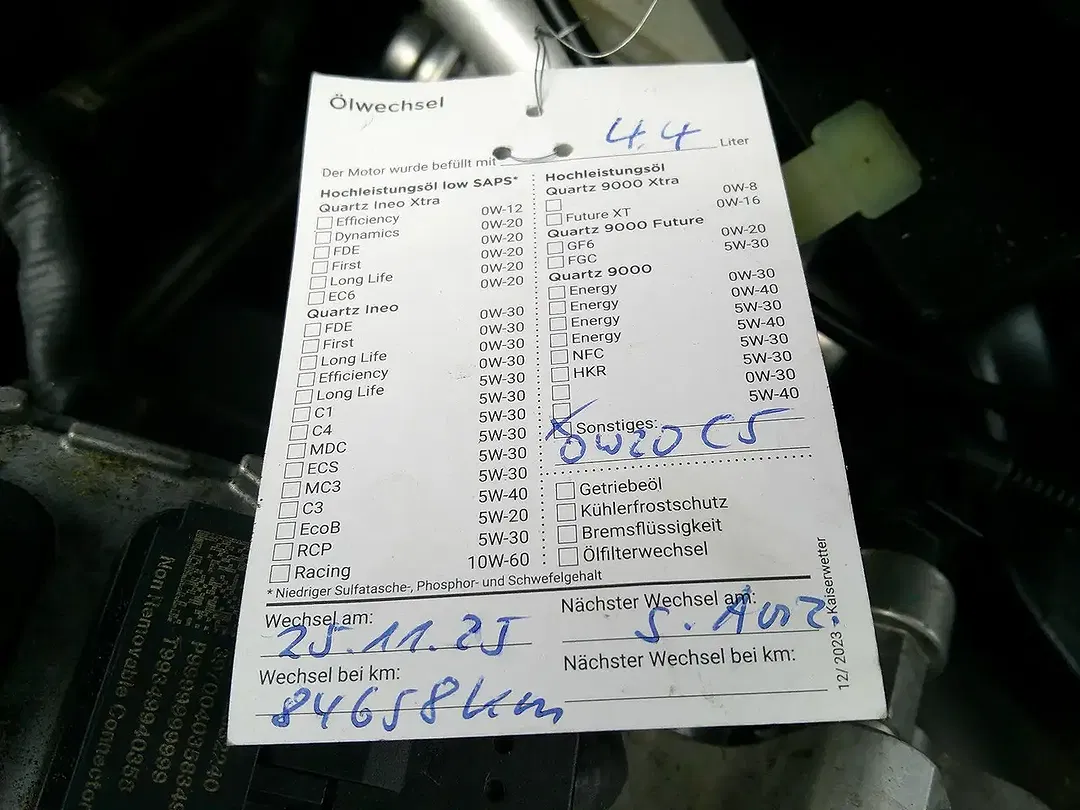 Ölwechsel
Der Motor wurde befüllt mit 4.4 Liter
Hochleistungsöl low SAPS*
Quartz Ineo Xtra
Efficiency 0W-12
Dynamics 0W-20
FDE 0W-20
First 0W-20
Long Life 0W-20
EC6 0W-20
Quartz Ineo
FDE 0W-30
First 0W-30
Long Life 0W-30
Efficiency 0W-30
Long Life 5W-30
C1 5W-30
C4 5W-30
MDC 5W-30
ECS 5W-30
MC3 5W-30
C3 5W-40
EcoB 5W-20
RCP 5W-30
Racing 10W-60
Hochleistungsöl
Quartz 9000 Xtra
0W-8
Future XT 0W-16
Quartz 9000 Future
GF6 0W-20
FGC 5W-30
Quartz 9000
Energy 0W-30
Energy 0W-40
Energy 5W-30
Energy 5W-40
NFC 5W-30
HKR 5W-30
0W-30
5W-40
Sonstiges:
0W20 C5
Getriebeöl
Kühlerfrostschutz
Bremsflüssigkeit
Ölfilterwechsel
* Niedriger Sulfatasche-, Phosphor- und Schwefelgehalt
Wechsel am:
25.11.25
Nächster Wechsel am:
Wechsel bei km:
84658 km
Nächster Wechsel bei km:
12/ 2023 - Kaiserwetter
Non Removable Connector